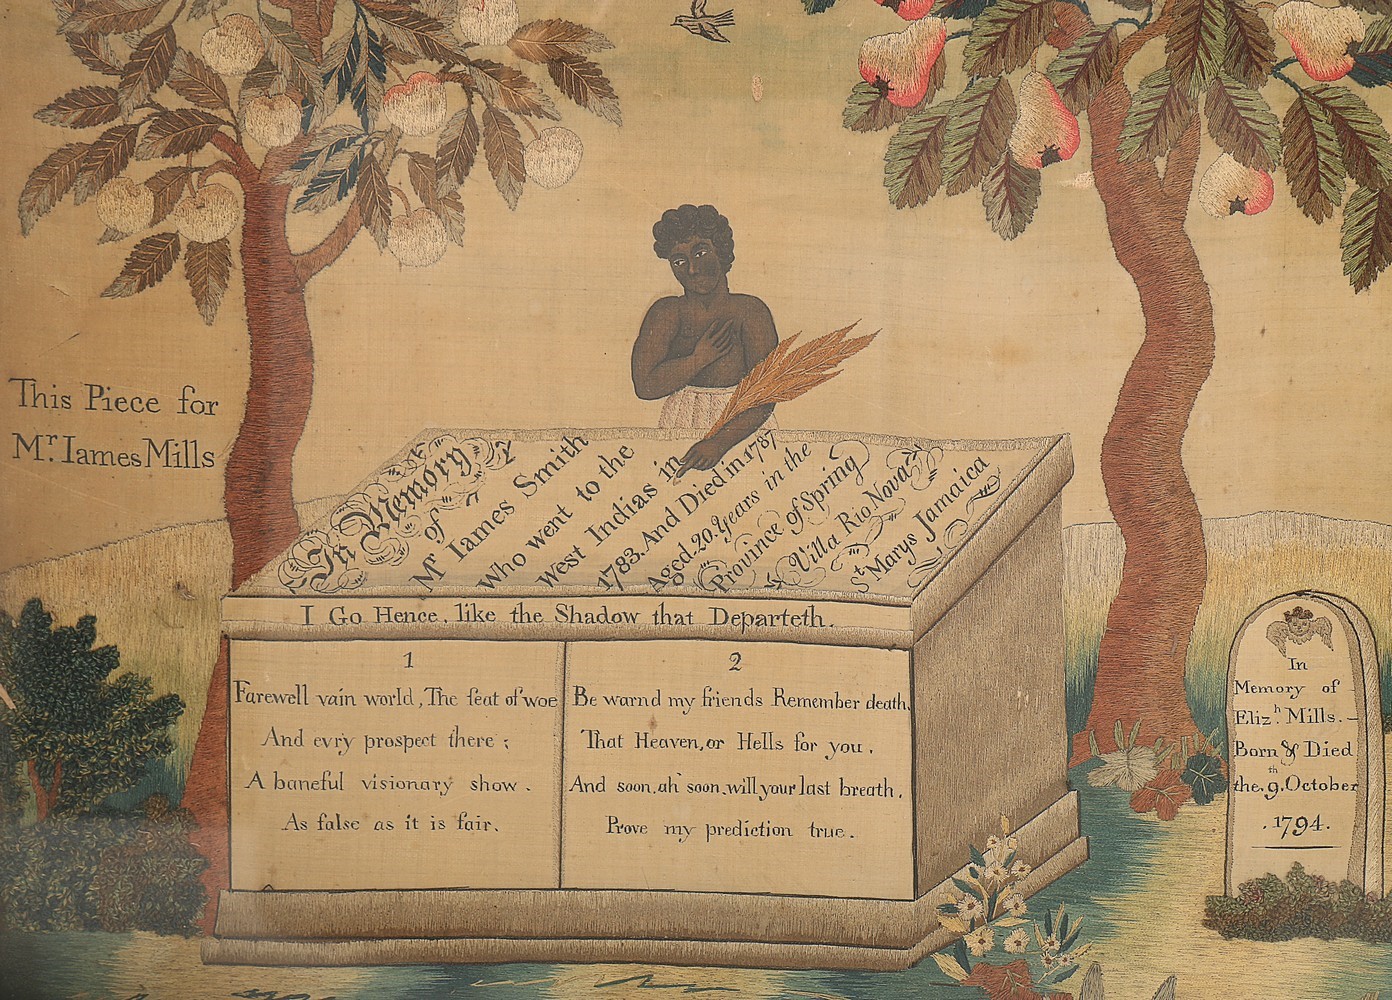 This Piece for
Mr. Iames Mills
In Memory
of
Mr Iames Smith
Who went to the
West Indias in
1783. And Died in 1787
Aged. 20. Years in the
Province of Spring
Villa Rio Nova
St Marys Jamaica
I Go Hence, like the Shadow that Departeth.
1
Farewell vain world, The seat of woe
And evry prospect there;
A baneful visionary show.
As false as it is fair.
2
Be warnd my friends Remember death,
That Heaven, or Hells for you.
And soon, ah soon, will your last breath.
Prove my prediction true.
In
Memory of
Elizh. Mills.
Born & Died
the. 9th. October
. 1794.